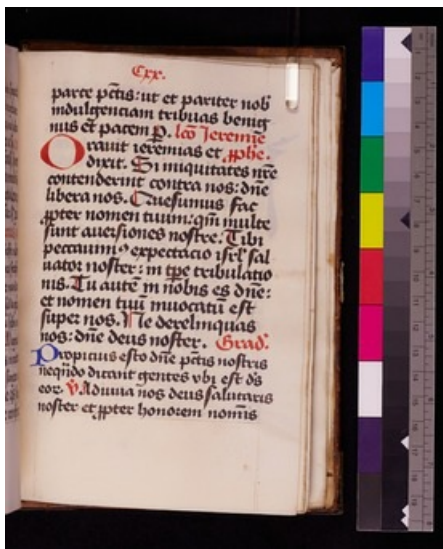 Cxx.
parte pctis: ut et pariter nob
indulgenciam tribuas benig
nus et pacem p. lco Jeremie
Orauit ieremias et pphe.
dixit. Si iniquitates nre
contenderint contra nos: dne
libera nos. Quesumus fac
ppter nomen tuum: qm multe
sunt auersiones nostre. Tibi
peccauim9 expectacio isrl sal
uator noster: in tpe tribulatio
nis. Tu aute in nobis es dne:
et nomen tuu inuocatu est
super nos. Ne derelinquas
nos: dne deus noster. Grad.
Propicius esto dne pctis nostris
neqndo dicant gentes vbi est ds
eor. V Adiuua nos deus salutaris
noster et ppter honorem nominis